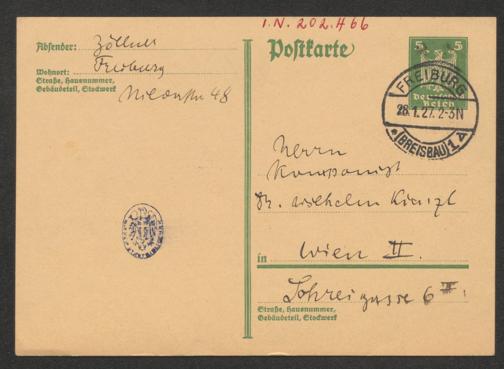 I.N. 202.466
Absender: Zöllner
Wohnort: Freiburg
Straße, Hausnummer,
Gebäudeteil, Stockwerk
48
Postkarte
5 5
Deutsches
Reich
FREIBURG
28.1.27. 2-3N
* (BREISGAU) 1 A
Herrn
Komponist
Dr. Wilhelm Kienzl
in Wien II.
6 III.
Straße, Hausnummer,
Gebäudeteil, Stockwerk